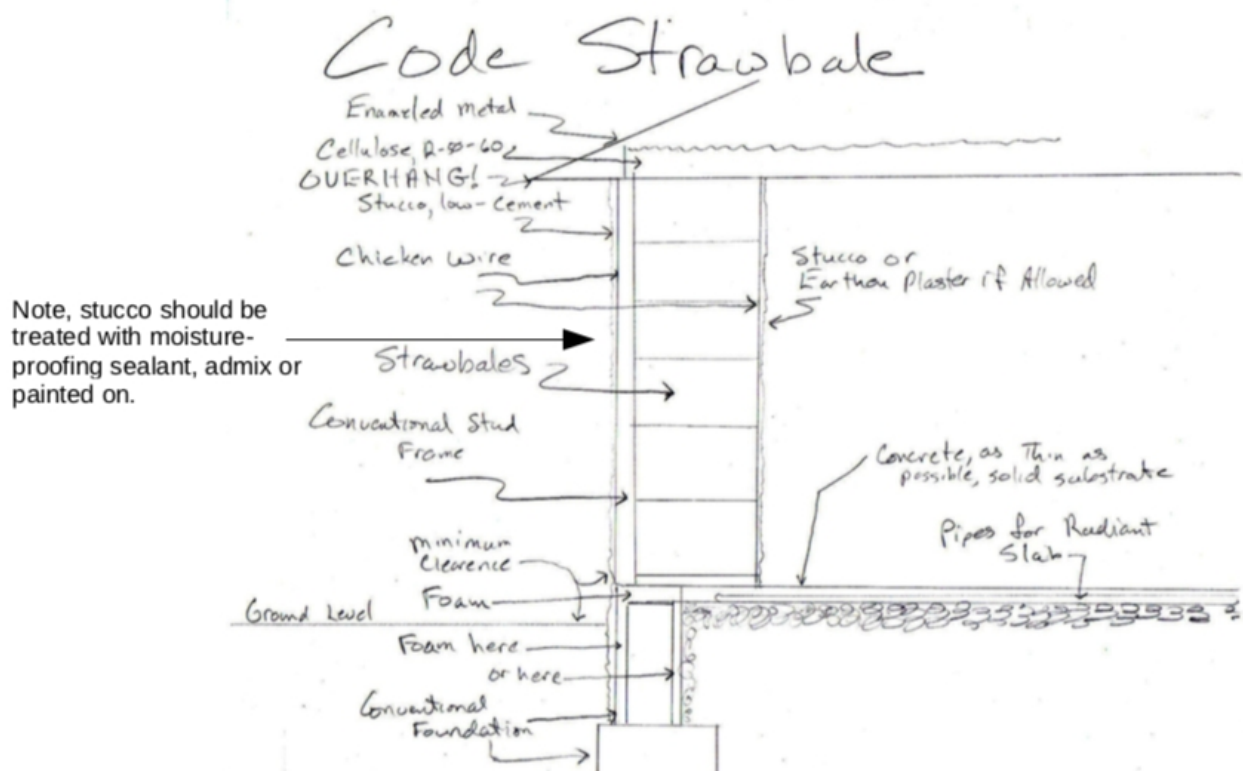 Code Strawbale
Enameled metal
Cellulose, R-50-60
OVERHANG!
Stucco, low-cement
Chicken wire
Stucco or
Earthen Plaster if Allowed
Note, stucco should be
treated with moisture-
proofing sealant, admix or
painted on.
Strawbales
Conventional Stud
Frame
Concrete, as Thin as
possible, solid substrate
Pipes for Radiant
Slab
minimum
Clearence
Foam
Ground Level
Foam here
or here
Conventional
Foundation